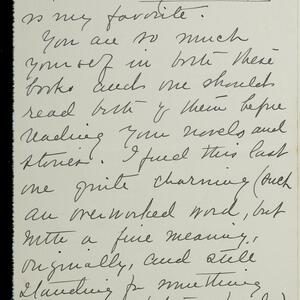 is my favorite.
You are so much
yourself in both these
books and one should
read both of them before
reading your novels and
stories. I find this last
one quite charming (such
an overworked word, but
with a fine meaning,
originally, and still
standing for something